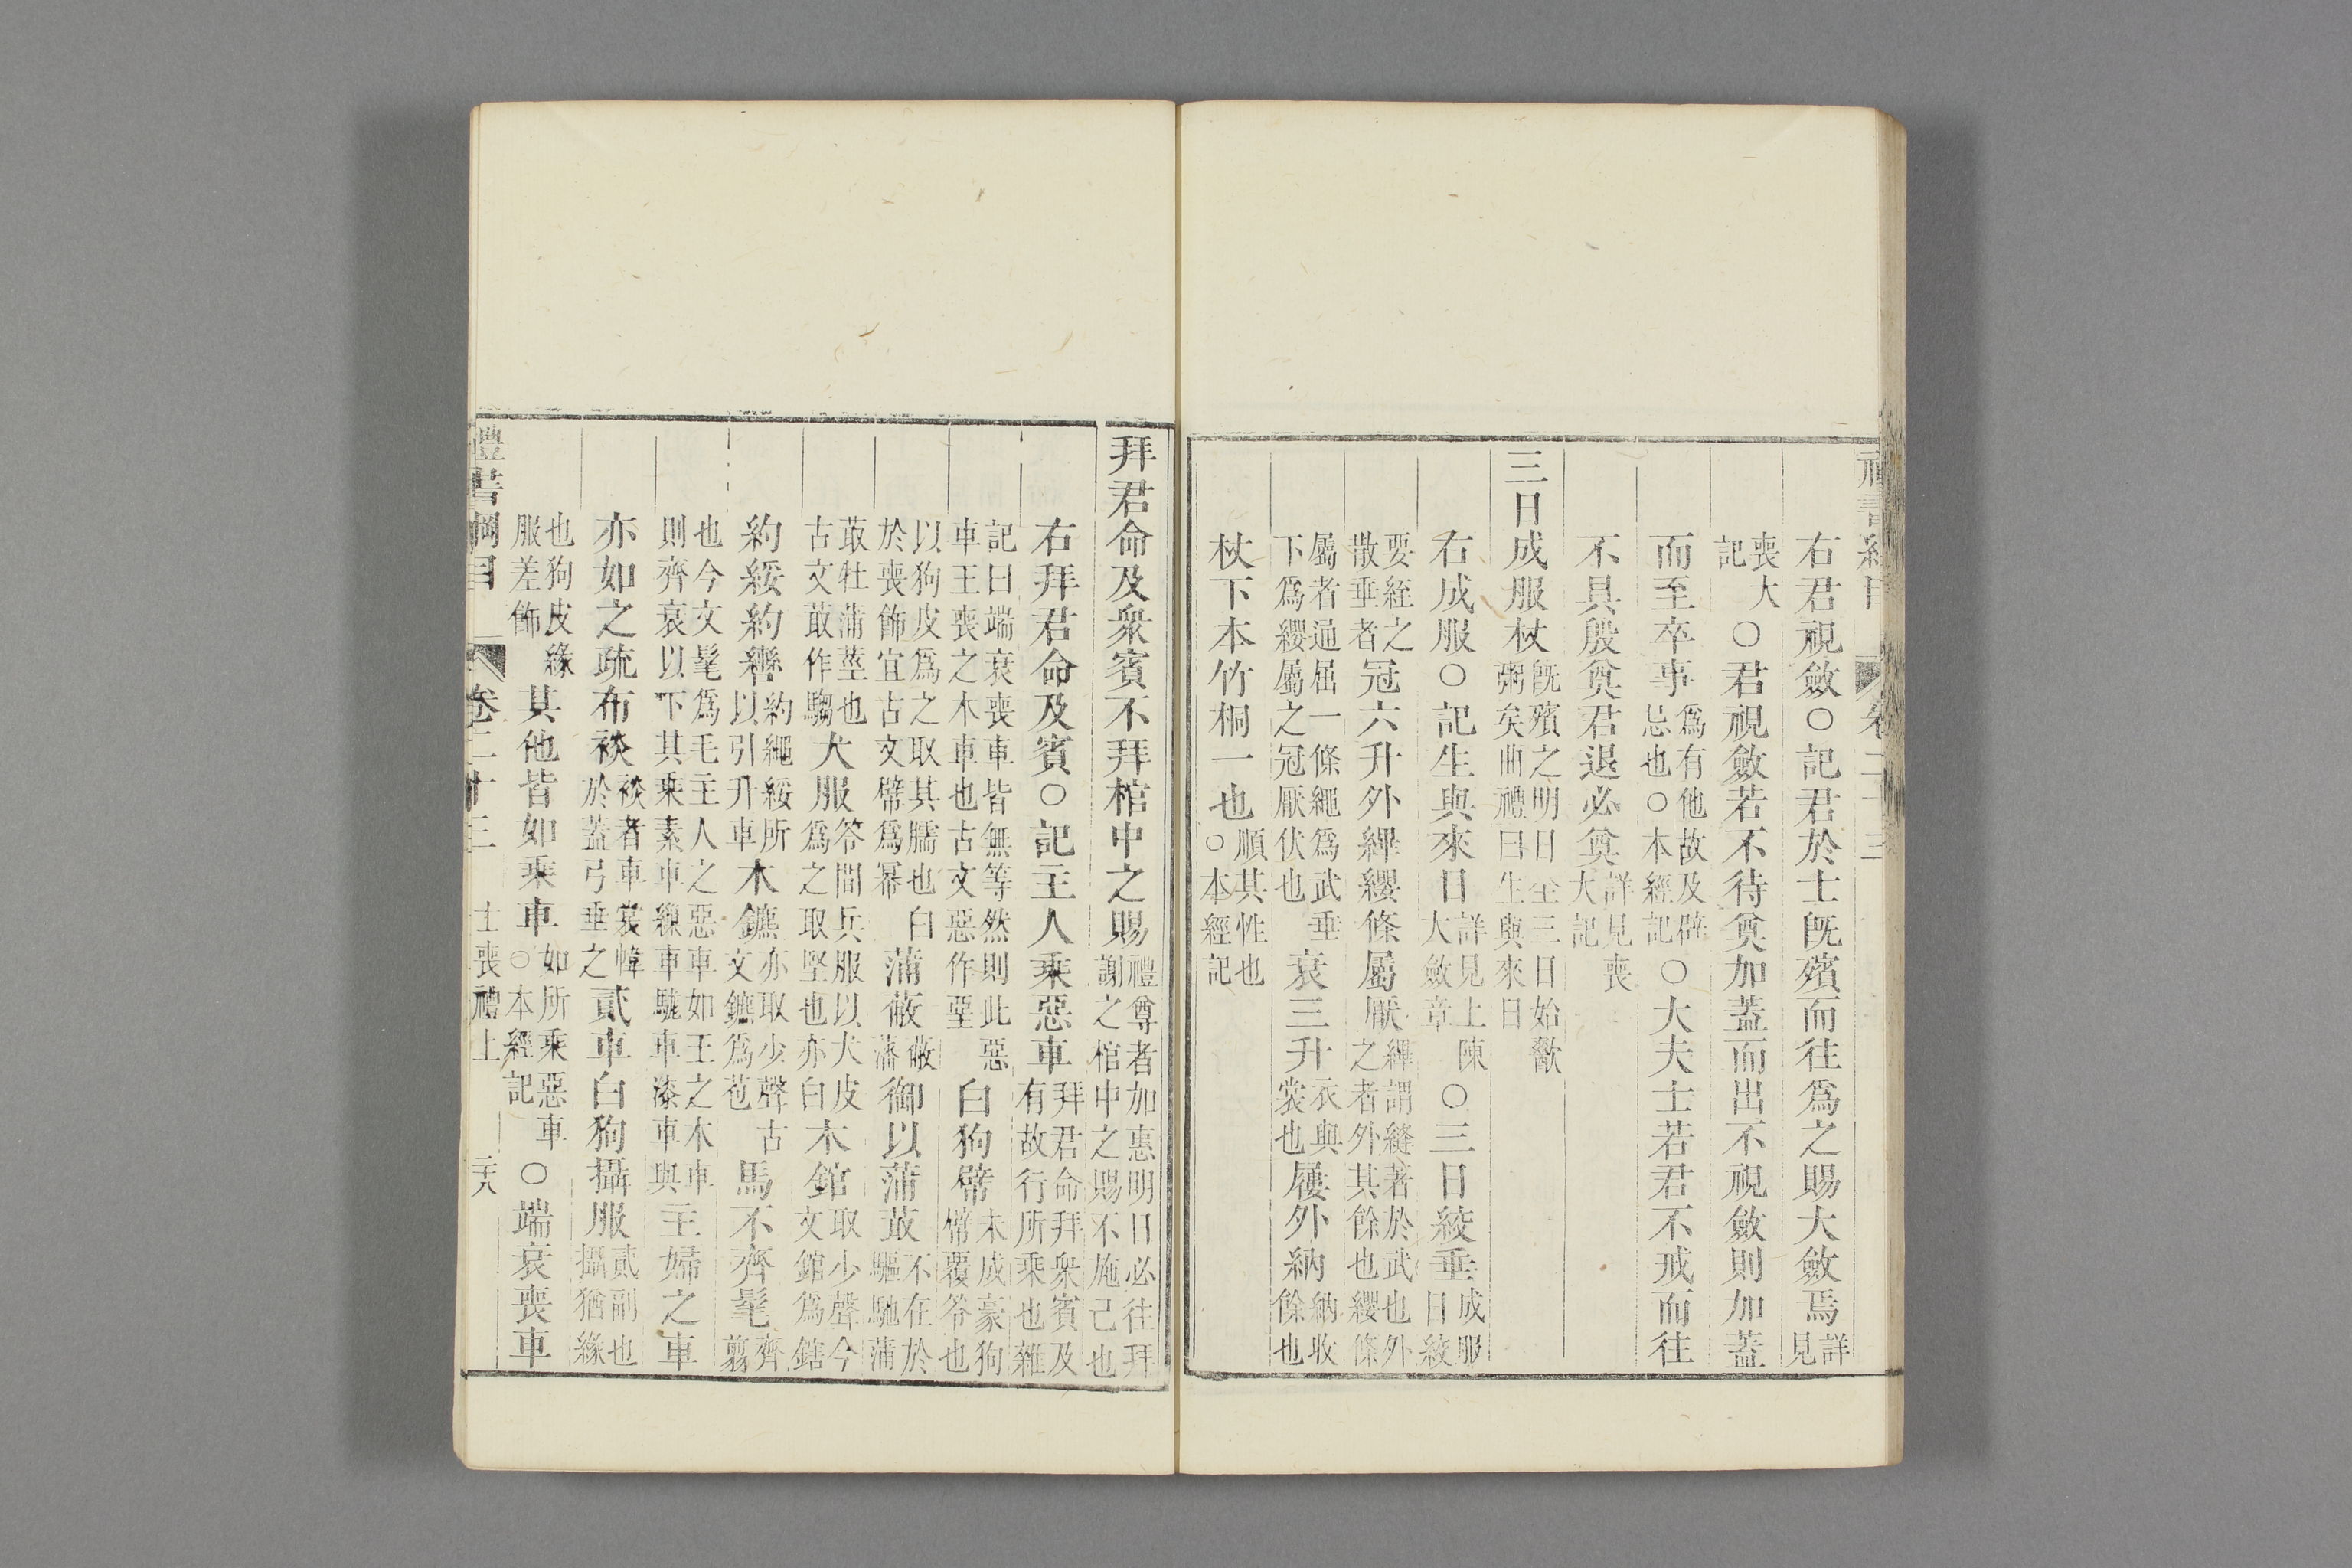 右君視斂○記君於士旣殯而往爲之賜大斂焉詳見
喪大記○君視斂若不待奠加蓋而出不視斂則加蓋
而至卒事爲有他故及辟忌也○本經記○大夫士若君不戒而往
不具殷奠君退必奠詳見喪大記
三日成服杖旣殯之明日全三日始歠粥矣曲禮曰生與來日
右成服○記生與來日詳見上陳大斂章○三日絞垂成服日絞
要絰之散垂者冠六升外縪纓條屬厭縪謂縫著於武也外之者外其餘也纓條
屬者通屈一條繩爲武垂下爲纓屬之冠厭伏也衰三升衣與裳也屨外納納收餘也
杖下本竹桐一也順其性也○本經記
拜君命及衆賓不拜棺中之賜禮尊者加惠明日必往拜謝之棺中之賜不施己也
右拜君命及賓○記主人乘惡車拜君命拜衆賓及有故行所乘也雜
記曰端衰喪車皆無等然則此惡車王喪之木車也古文惡作堊白狗幦未成豪狗幦覆笭也
以狗皮爲之取其臑也白於喪飾宜古文幦爲冪蒲蔽蔽藩御以蒲菆不在於驅馳蒲
菆牡蒲莖也古文菆作騶犬服笭間兵服以犬皮爲之取堅也亦白木錧取少聲今文錧爲鎋
約綏約轡約繩綏所以引升車木鑣亦取少聲古文鑣爲苞馬不齊髦齊翦
也今文髦爲毛主人之惡車如王之木車則齊衰以下其乘素車繅車駹車漆車與主婦之車
亦如之疏布裧裧者車裳幃於蓋弓垂之貳車白狗攝服貳副也攝猶緣
也狗皮緣服差飾其他皆如乘車如所乘惡車○本經記○端衰喪車
禮書綱目 卷二十三 士喪禮上 二十八